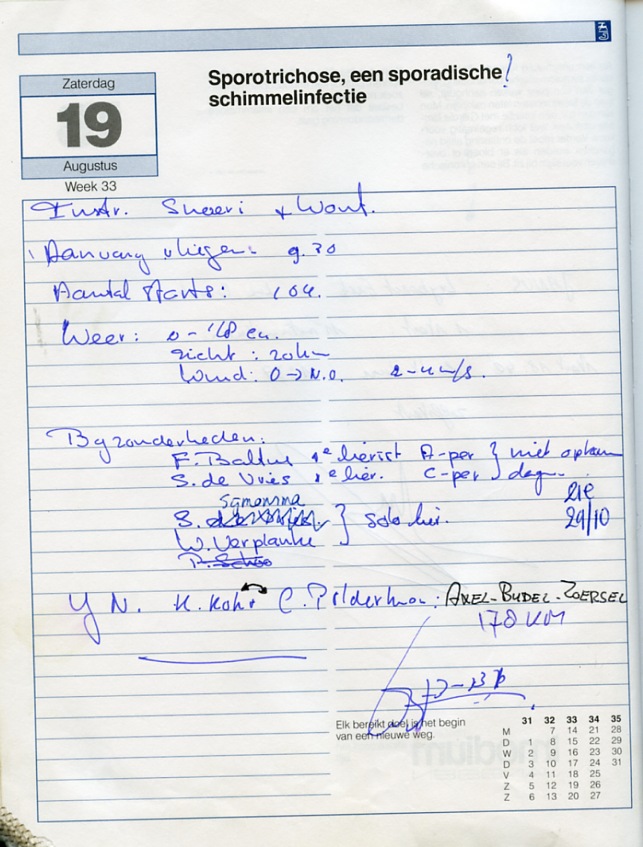 Zaterdag
19
Augustus
Week 33
Sporotrichose, een sporadische
schimmelinfectie
Instr. + Wout.
Aanvang vliegen: 9.30
Aantal starts: 104.
Weer:
zicht: 20 km
Wind: O → N.O. 2-4 m/s.
Byzonderheden:
F. Baltus 1e lierist A-per } niet op
S. de Vries 1e lier. C-per } dag
zie
29/10
Symonsma
S. } solo lier.
W. Verplanke
YN. K. Kohr C. Polderman: AXEL-BUDEL-ZOERSEL
178 KM
Elk bereikt doel is het begin
van een nieuwe weg.
31 32 33 34 35
M 7 14 21 28
D 1 8 15 22 29
W 2 9 16 23 30
D 3 10 17 24 31
V 4 11 18 25
Z 5 12 19 26
Z 6 13 20 27